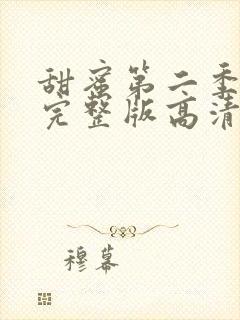 甜蜜第二季
完整版高清
穆幕